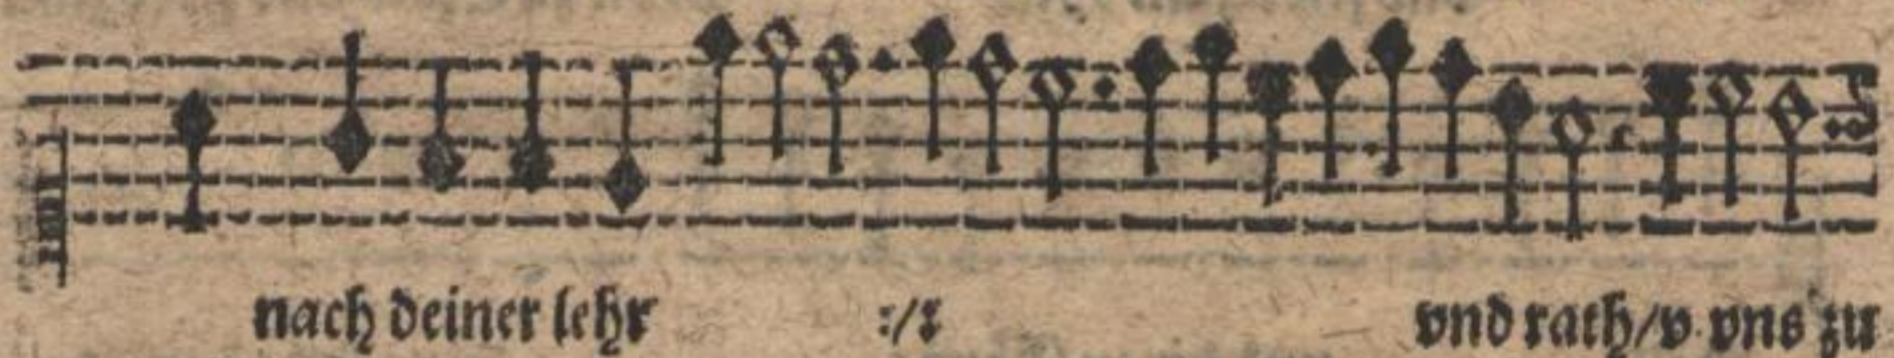 nach deiner lehr :/: vnd rath/v. vns zu